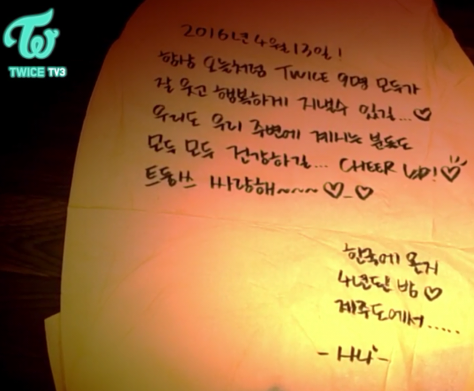 TWICE TV3
2016년 4월 13일!
항상 오늘처럼 TWICE 9명 모두가
잘 웃고 행복하게 지낼수 있길...♡
우리도 우리 주변에 계시는 분들도
모두 모두 건강하길... CHEER UP!♡
트둥쓰 싸랑해~~~~♡_♡
한국에 온지
4년된 밤♡
제주도에서.....
-사나-